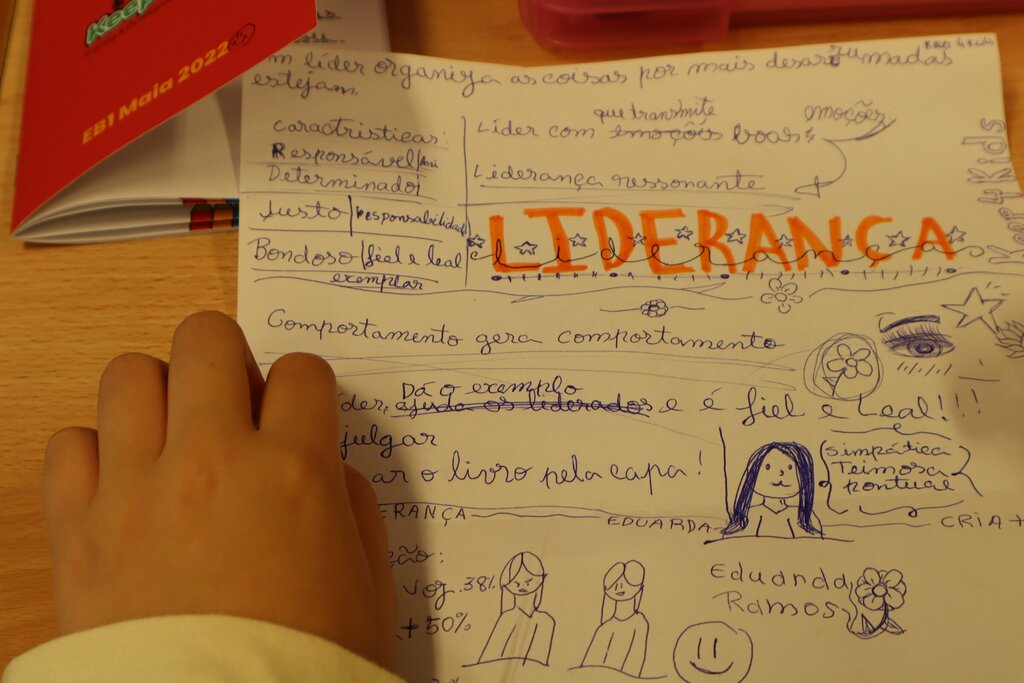 Keep
EB1 Maia 2022
m líder organiza as coisas por mais desarrumadas
estejam
Keep 4 Kids
Caractristicas:
Responsável
Determinado
Justo responsabilidade
Bondoso fiel e leal
exemplar
que transmite emoções
Líder com emoções boas
Liderança ressonante
LIDERANÇA
Liderança
Keep 4 Kids
Comportamento gera comportamento
Dá o exemplo
íder, ajuda os liderados e é fiel e Leal!!!
julgar
ar o livro pela capa!
simpática
Teimosa
pontual
ERANÇA EDUARDA CRIA+
ção:
voz 38%
+ 50%
Eduarda
Ramos